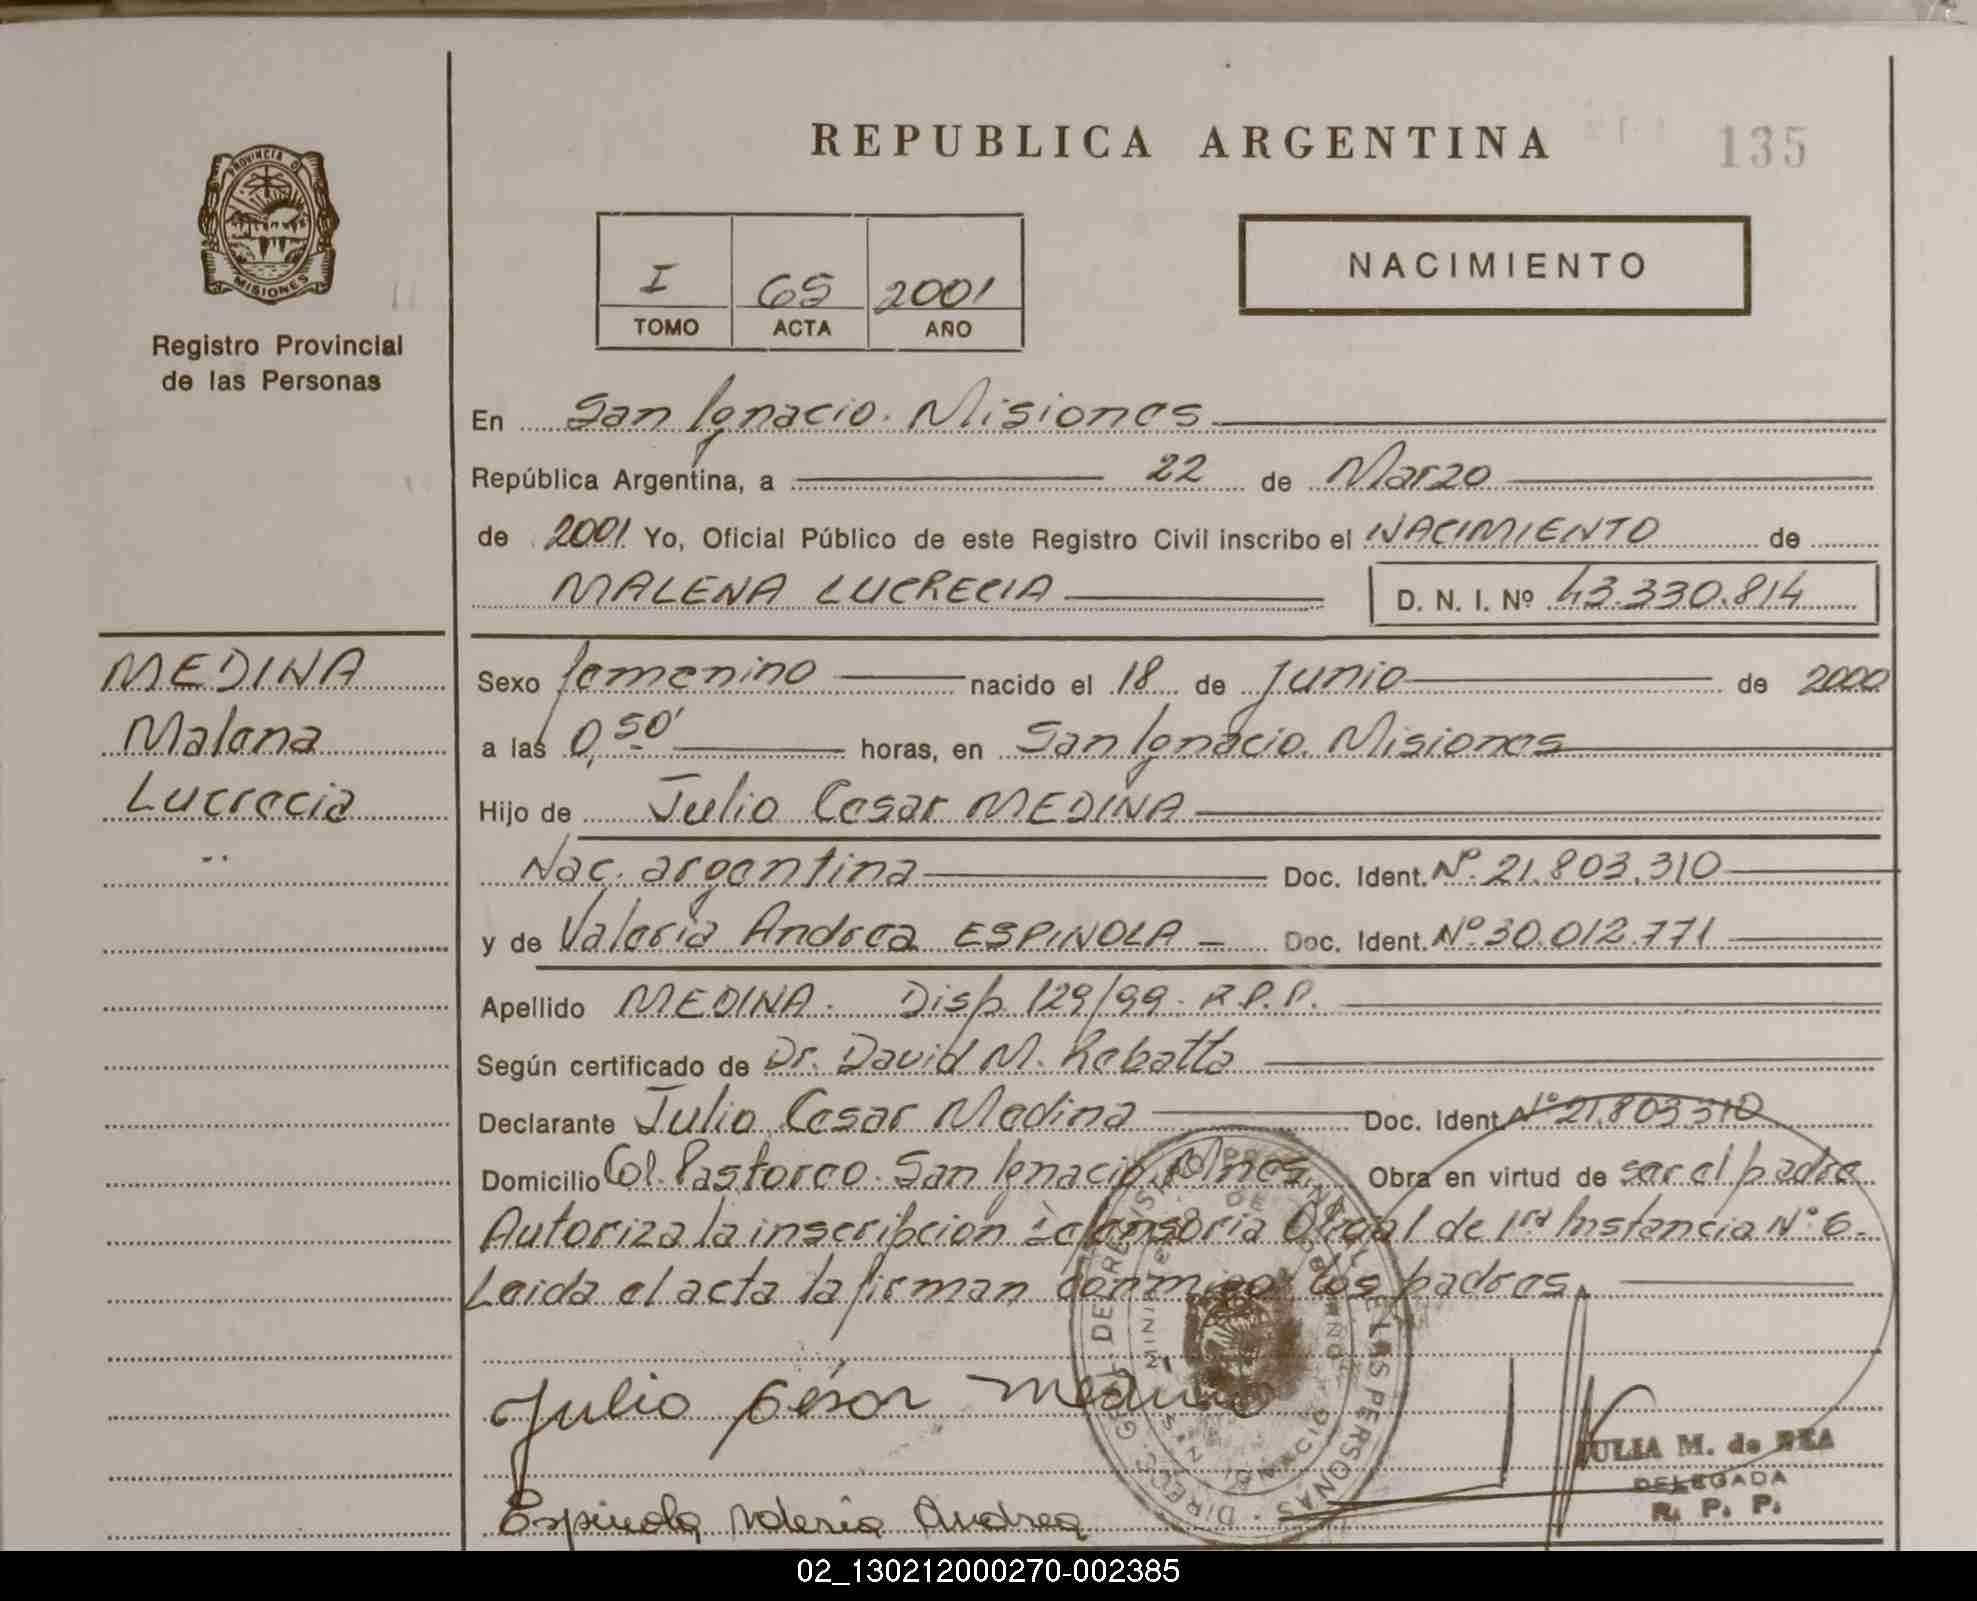 REPUBLICA ARGENTINA
135
PROVINCIA D
MISIONES
Registro Provincial
de las Personas
I 65 2001
TOMO ACTA AÑO
NACIMIENTO
En San Ignacio. Misiones
República Argentina, a 22 de Marzo
de 2001 Yo, Oficial Público de este Registro Civil inscribo el NACIMIENTO de
MALENA LUCRECIA D. N. I. Nº 43.330.814
MEDINA
Malena
Lucrecia
Sexo femenino nacido el 18 de Junio de 2000
a las 0,50' horas, en San Ignacio. Misiones
Hijo de Julio Cesar MEDINA
Nac. argentina Doc. Ident. Nº. 21.803.310
y de Valeria Andrea ESPINOLA Doc. Ident. Nº 30.012.771
Apellido MEDINA. Disp. 129/99. R.P.P.
Según certificado de Dr. David M. Rebatta
Declarante Julio Cesar Medina Doc. Ident. Nº 21.803.310
Domicilio Col. Pastoreo. San Ignacio. Mnes. Obra en virtud de ser el padre
Autoriza la inscripcion Defensoria Oficial de 1ra Instancia Nº 6.
Leida el acta la firman conmigo los padres.
Julio César Medina
Espinola Valeria Andrea
DIREC. GRAL DE REGISTRO PROVINCIAL DE LAS PERSONAS
JULIA M. de REA
DELEGADA
R. P. P.
02_130212000270-002385